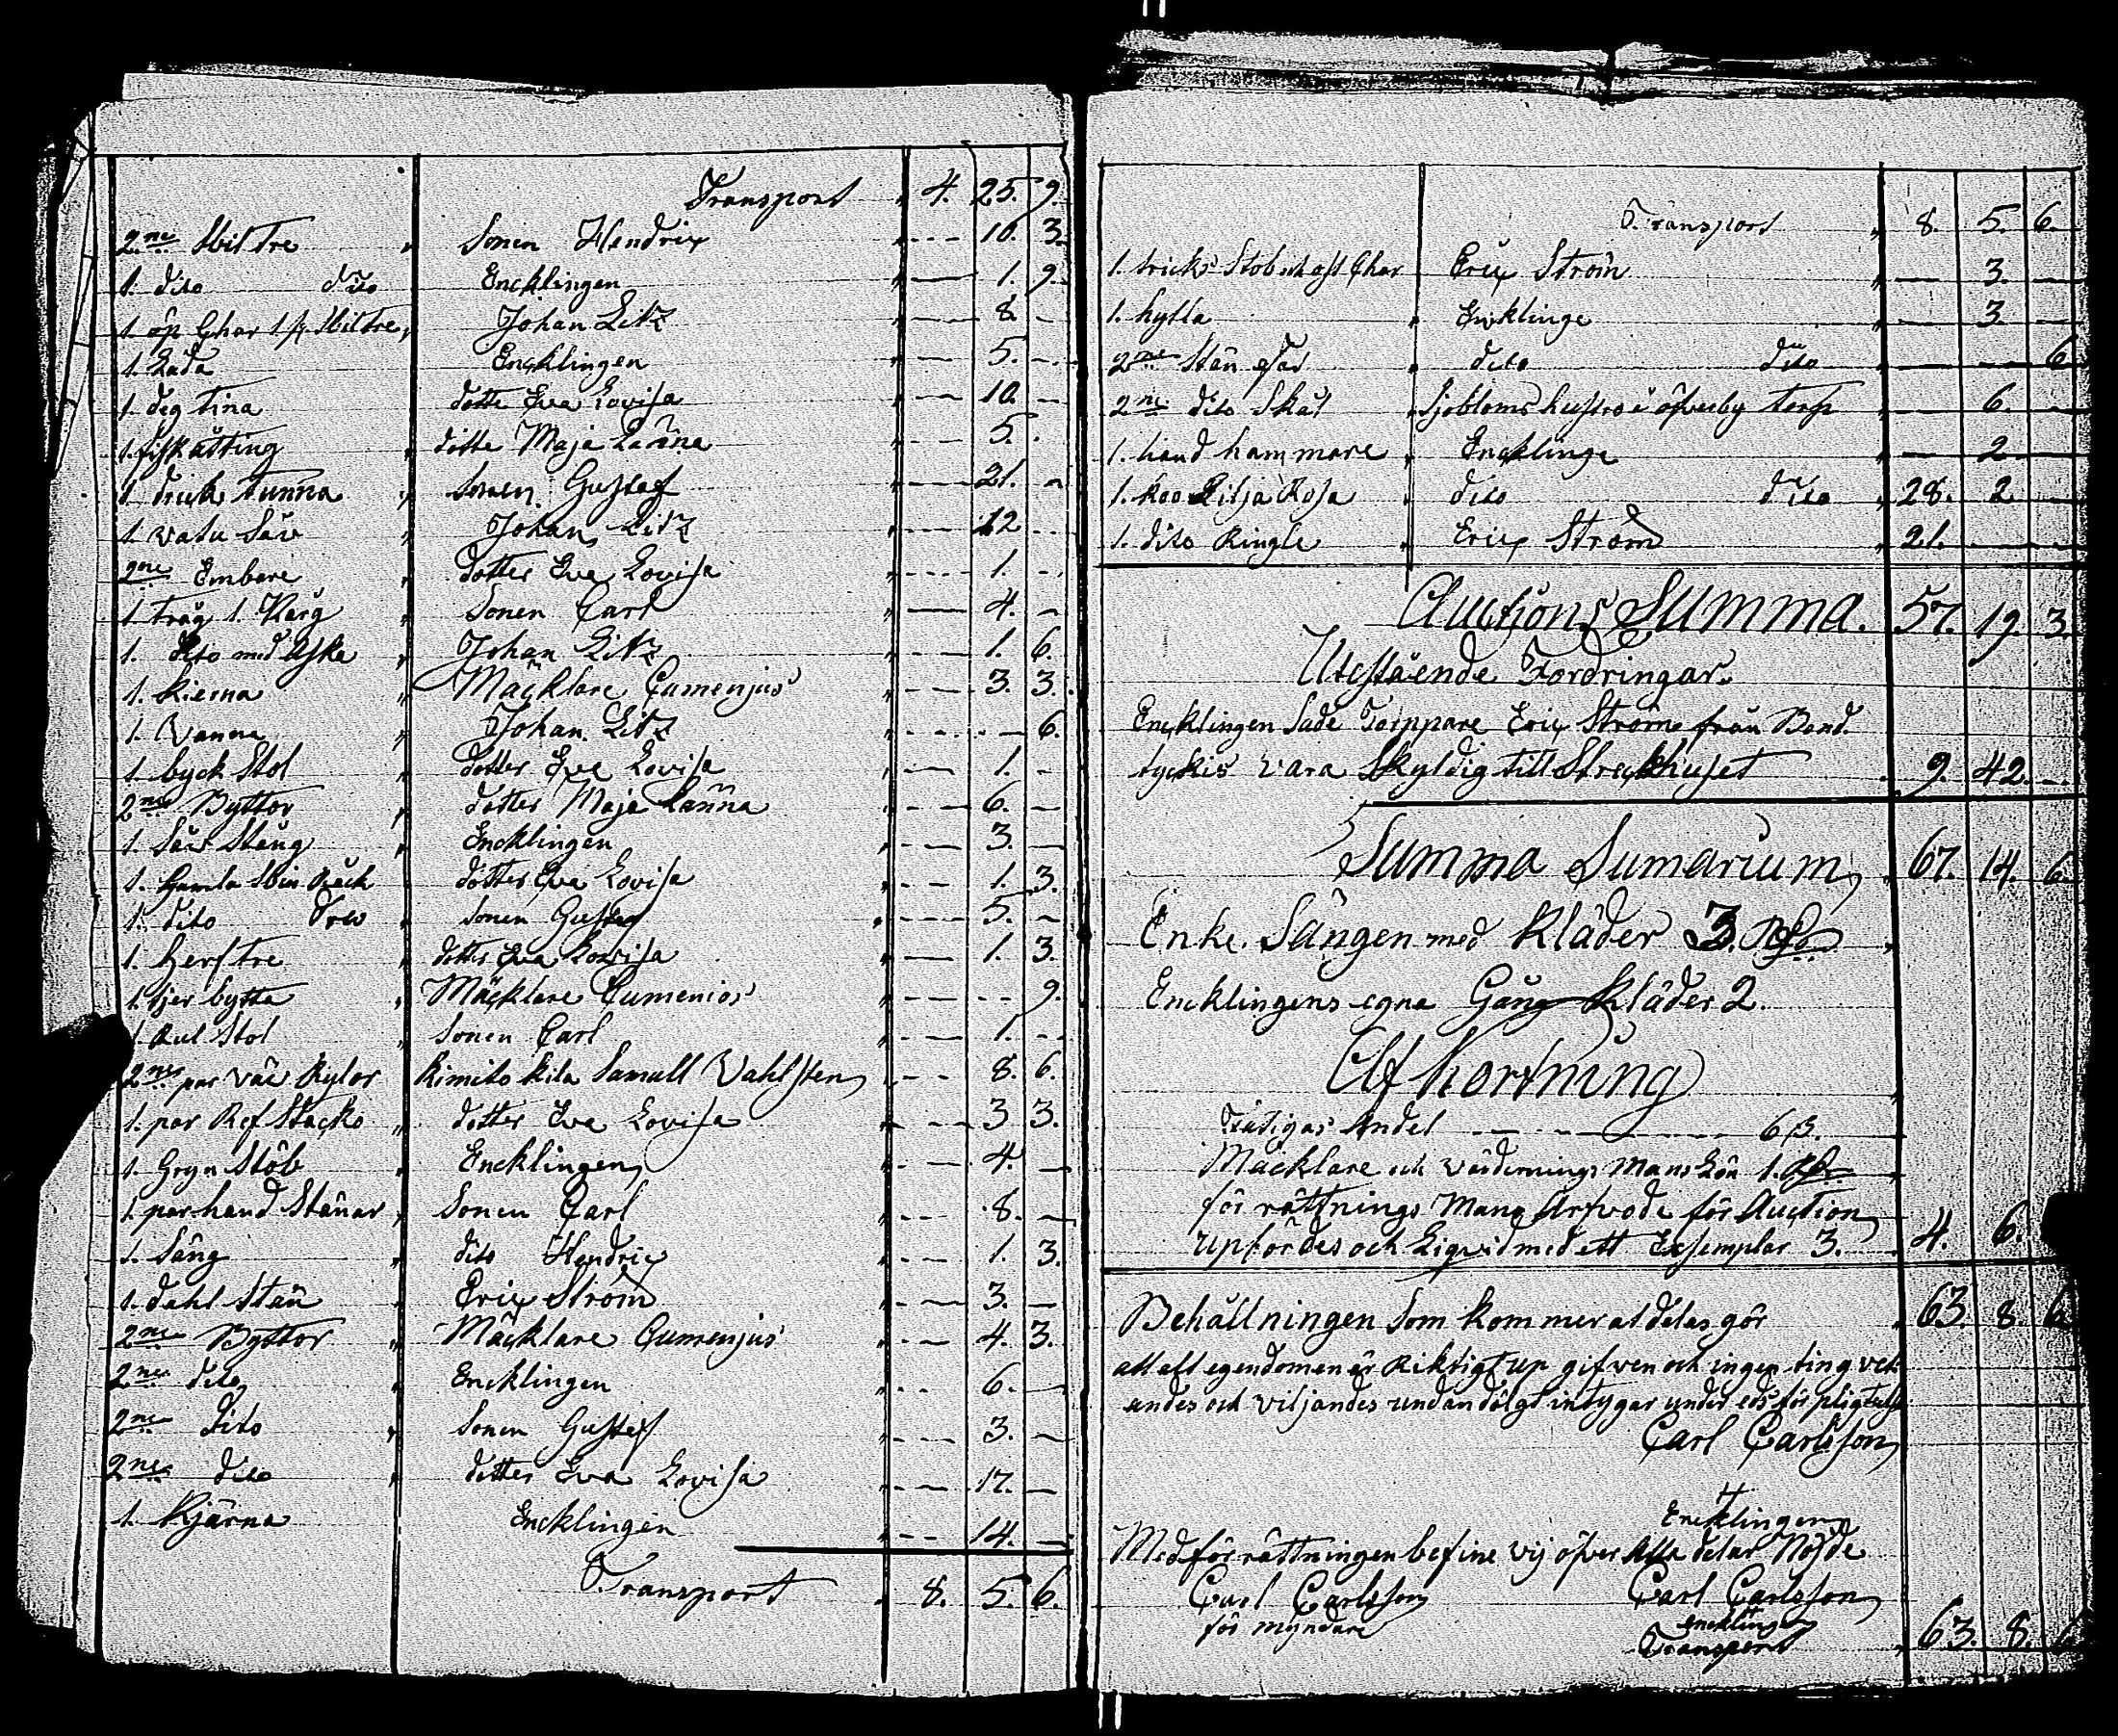 Transport " 4. 25. 9.
2ne Stil Tre " Sonen Hendrix " --- 10. 3.
1. dito dito Encklingen " — 1. 9.
1 öp Char 1 Stil Tre " Johan Litz " — 8. -
1. Lada Encklingen " — 5. -
1. deg tina dotte Eva Lovisa " — 10. —
1. fiskätting " ditte Maja Lanna " — 5. -
1. drick tunna " Sonen Gustaf " — 21. -
1. vatu Såv " Johan Litz " — 12 -
2ne Embare " dotter Eva Lovisa " --- 1. -
1. tråg 1. Karg " Sonen Carl " — 4. -
1. dito med Aska " Johan Litz " --- 1. 6.
1. Kierna " Mäcklare Cumenjus " --- 3. 3.
1. Vanna " Johan Litz " --- — 6.
1. byck Stol " dotter Eva Lovisa " --- 1. -
2ne Byttor " dotter Maja Lanna " --- 6. —
1. Såv Stång " Encklingen " — 3. —
1. Gamla Stin Räck dotter Eva Lovisa " — 1. 3.
1. dito Drev " sonen Gustaf " — 5. -
1. herf tre " dotter Eva Lovisa " — 1. 3.
1. tjer bytta " Mäcklare Cumenios " — -- 9.
1. Rul Stol " Sonen Carl " — 1. --
2ne par väv Kylor Kimito Kila Samull Vahlsten " --- 8. 6.
1. par Ref Stacko " dotter Eva Lovisa " --- 3 3.
1. Gryn Stöb " Encklingen " — 4. —
1. par hand Stänar " Sonen Carl " --- 8. —
1. Säng " dito Hendric " --- 1. 3.
1. dahl Stän " Eric Ström " --- 3. —
2ne Byttor " Mäcklare Cumenjus " --- 4. 3.
2ne dito " Encklingen " --- 6. —
2ne dito " Sonen Gustaf " --- 3. —
2ne dito " dotter Eva Lovisa " --- 17. —
1. Kjärna Encklingen " --- 14. —
Transport " 8. 5. 6.
Transport " 8. 5. 6.
1. Char Erix Ström " — 3. —
1. hylla " Encklinge " — 3. —
2ne Stän fat " dito dito " — — 6
2ne dito Skål " Sjobloms hustro i öfverby torp " — 6. —
1. hand hammare " Encklinge " — 2. —
1. koo Lilja Rosa " dito dito " 28. 2. —
1. dito Ringle " Eric Ström " 21. — —
Auctions Summa. 57. 19. 3.
Utestående Fordringar.
Encklingen Sade Torppare Eric Ström från Band.
tyckis vara Skyldig till Sterckhuset " 9. 42. —
Summa Sumarium " 67. 14. 6.
Enke. Sängen med Kläder 3. Rb "
Encklingens egna Gång Kläder 2.
Afkortning "
Fatigas Andel ——— 6 ß. "
Mäcklare och Värdernings Mans Lön 1. Rb "
för rättnings Mans Arfvode för Auction
Upfördes och Liqvid med ett Exsemplar 3. " 4. 6.
Behållningen Som kommer at delas gör " 63. 8. 6.
att alt egendomen är Riktigt up gifven och ingen ting vet
andes och viljandes undan dölgt intygar under eds för pligtelse
Carl Carlsson
Encklingen
Med för rättningen befine vij öfver Alla delar Nöjde
Carl Carlsson Carl Carlsson
för myndare encklinge
Transport " 63. 8.